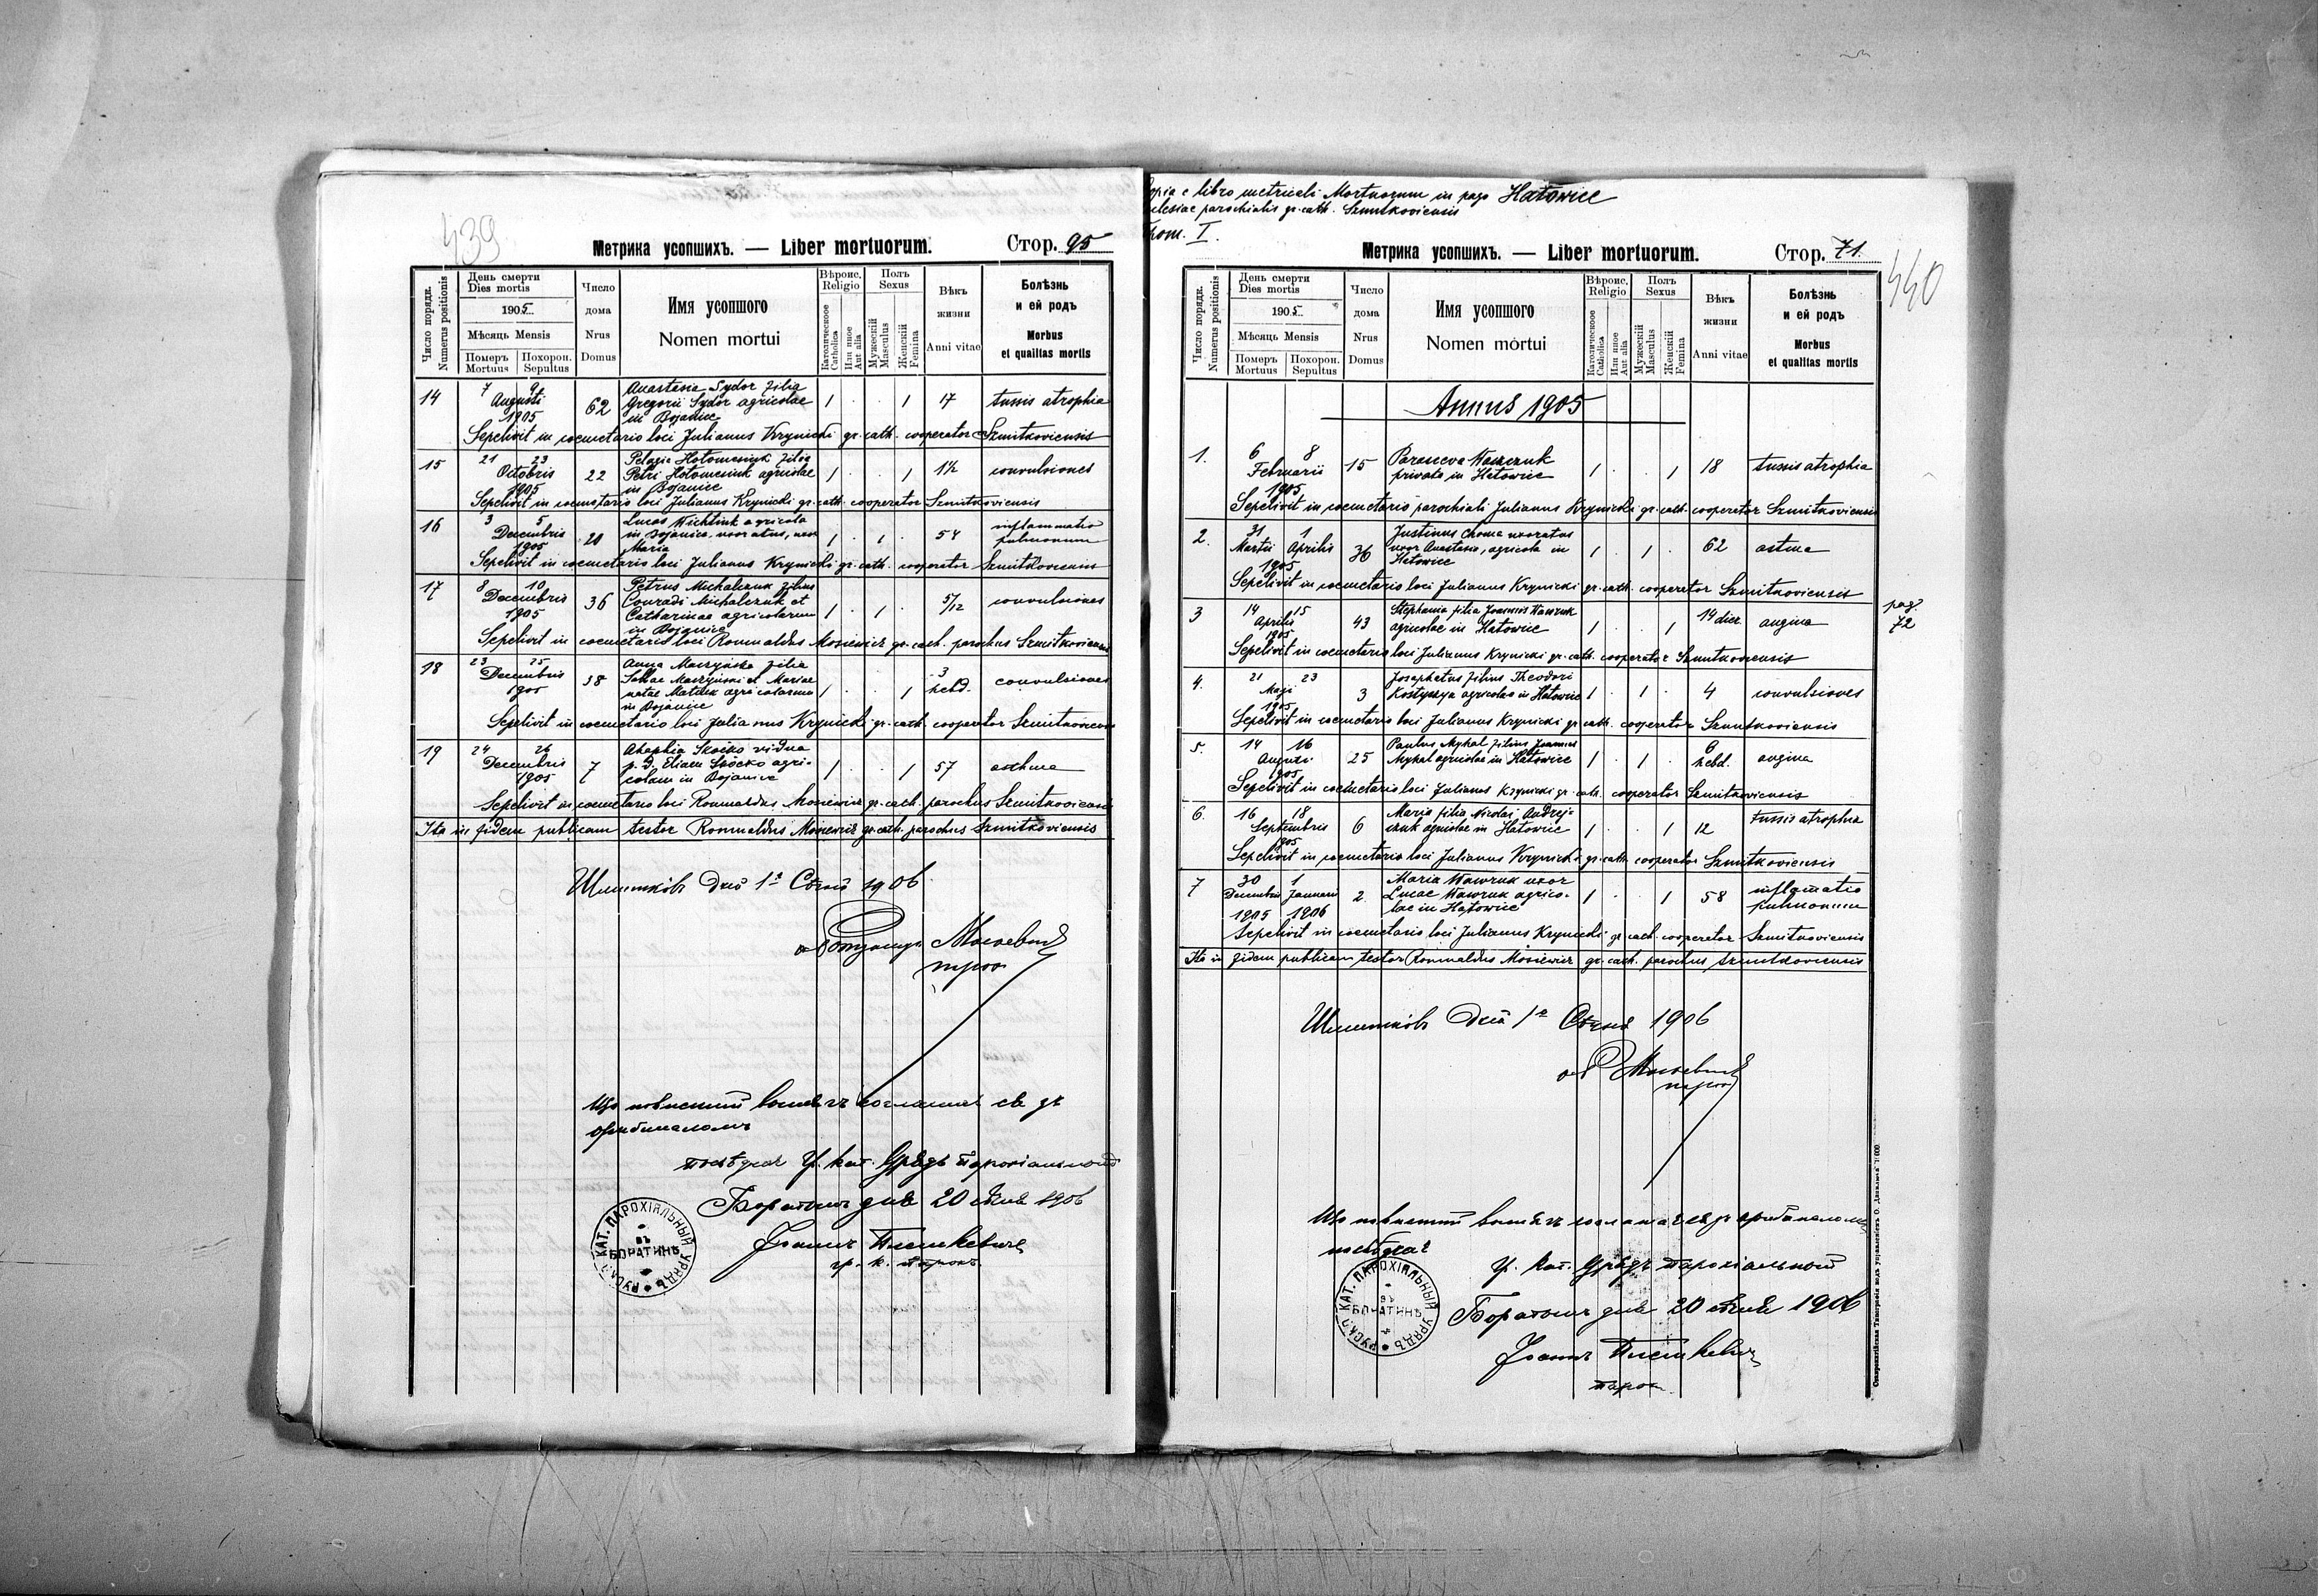 439
Метрика усопшихъ. — Liber mortuorum.
Стор. 95
Число порядк.
Numerus positionis
День смерти
Dies mortis
1905
Мѣсяць Mensis
Померъ
Mortuus
Похорон.
Sepultus
Число
дома
Nrus
Domus
Имя усопшого
Nomen mortui
Вѣроис.
Religio
Католическоое
Catholica
Или иное
Aut alia
Полъ
Sexus
Мужескій
Masculus
Женскій
Femina
Вѣкъ
жизни
Anni vitae
Болѣзнь
и ей родъ
Morbus
et qualitas mortis
14 7 9 Augusti 1905 62 Anastasia Sydor filia
Gregorii Sydor agricolae
in Bojanice 1 . . 1 17 tussis atrophia
Sepelivit in coemetario loci Julianus Krynicki gr. cath. cooperator Szmitkoviensis
15 21 23 Octobris 1905 22 Pelagia Hotomeniuk filia
Petri Hotomeniuk agricolae
in Bojanice 1 . . 1 1½ convulsiones
Sepelivit in coemetario loci Julianus Krynicki gr. cath. cooperator Szmitkoviensis
16 3 5 Decembris 1905 20 Lucas agricola
in Bojanice, uxoratus, uxor
Maria 1 . 1 . 54 inflammatio
pulmonum
Sepelivit in coemetario loci Julianus Krynicki gr. cath. cooperator Szmitkoviensis
17 8 10 Decembris 1905 36 Petrus Michalczuk filius
Conradi Michalczuk et
Catharinae agricolarum
in Bojanice 1 . 1 . 5/12 convulsiones
Sepelivit in coemetario loci Romualdus Mosiewicz gr. cath. parochus Szmitkoviensis
18 23 25 Decembris 1905 38 Anna Maczyńska filia
Sabbae Maczyński et Mariae
natae agricolarum
in Bojanice 1 . . 1 3
hebd. convulsiones
Sepelivit in coemetario loci Julianus Krynicki gr. cath. cooperator Szmitkoviensis
19 24 26 Decembris 1905 7 Ahaphia Skoćko vidua
p. d. Eliam Skoćko agri-
colam in Bojanice 1 . . 1 57 asthma
Sepelivit in coemetario loci Romualdus Mosiewicz gr. cath. parochus Szmitkoviensis
Ita in fidem publicam testor Romualdus Mosiewicz gr. cath. parochus Szmitkoviensis
Шмитківъ дня 1 Січня 1906
Мосєвичъ
парох
ориґиналомъ
Гр. кат. Урядъ парохіальный
Боратинъ дня 20 січня 1906
Іоаннъ
гр. к. парох.
РУСК. КАТ. ПАРОХІЯЛЬНЫЙ УРЯДЪ
въ
БОРАТИНѢ
Copia e libro metricali Mortuorum in pago Hatowice
ecclesiae parochialis gr. cath. Szmitkoviensis
Tom. I.
Метрика усопшихъ. — Liber mortuorum.
Стор. 71.
440
Число порядк.
Numerus positionis
День смерти
Dies mortis
1905
Мѣсяць Mensis
Померъ
Mortuus
Похорон.
Sepultus
Число
дома
Nrus
Domus
Имя усопшого
Nomen mortui
Вѣроис.
Religio
Католическоое
Catholica
Или иное
Aut alia
Полъ
Sexus
Мужескій
Masculus
Женскій
Femina
Вѣкъ
жизни
Anni vitae
Болѣзнь
и ей родъ
Morbus
et qualitas mortis
Annus 1905
1. 6 8 Februarii 1905 15 Parasceva
privata in Hatowice 1 . . 1 18 tussis atrophia
Sepelivit in coemetario parochiali Julianus Krynicki gr. cath. cooperator Szmitkoviensis
2. 31 Martii 1 Aprilis 1905 36 Justinus Choma uxoratus
uxor Anastasia, agricola in
Hatowice 1 . 1 . 62 astma
Sepelivit in coemetario loci Julianus Krynicki gr. cath. cooperator Szmitkoviensis
3 14 15 Aprilis 1905 43 Stephania filia Joannis Wawruk
agricolae in Hatowice 1 . 1 14 dier. angina
pag.
72
Sepelivit in coemetario loci Julianus Krynicki gr. cath. cooperator Szmitkoviensis
4. 21 23 Maji 1905 3 Josaphatus filius Theodori
Kostyszyn agricolae in Hatowice 1 . 1 . 4 convulsiones
Sepelivit in coemetario loci Julianus Krynicki gr. cath. cooperator Szmitkoviensis
5. 14 16 Augusti 1905 25 Paulus Mykal filius Joannis
Mykal agricolae in Hatowice 1 . 1 . 8
hebd. angina
Sepelivit in coemetario loci Julianus Krynicki gr. cath. cooperator Szmitkoviensis
6. 16 18 Septembris 1905 6 Maria filia Nicolai Andrej-
czuk agricolae in Hatowice 1 . . 1 12 tussis atrophia
Sepelivit in coemetario loci Julianus Krynicki gr. cath. cooperator Szmitkoviensis
7 30 Decembris 1905 1 Januarii 1906 2 Maria Wawruk uxor
Lucae Wawruk agrico-
lae in Hatowice 1 . . 1 58 inflamatio
pulmonum
Sepelivit in coemetario loci Julianus Krynicki gr. cath. cooperator Szmitkoviensis
Ita in fidem publicam testor Romualdus Mosiewicz gr. cath. parochus Szmitkoviensis
Шмитківъ дня 1 Січня 1906
Мосєвичъ
парох
Гр. Кат. Урядъ парохіальный
Боратинъ дня 20 січня 1906
Іоаннъ
парох
РУСК. КАТ. ПАРОХІЯЛЬНЫЙ УРЯДЪ
въ
БОРАТИНѢ